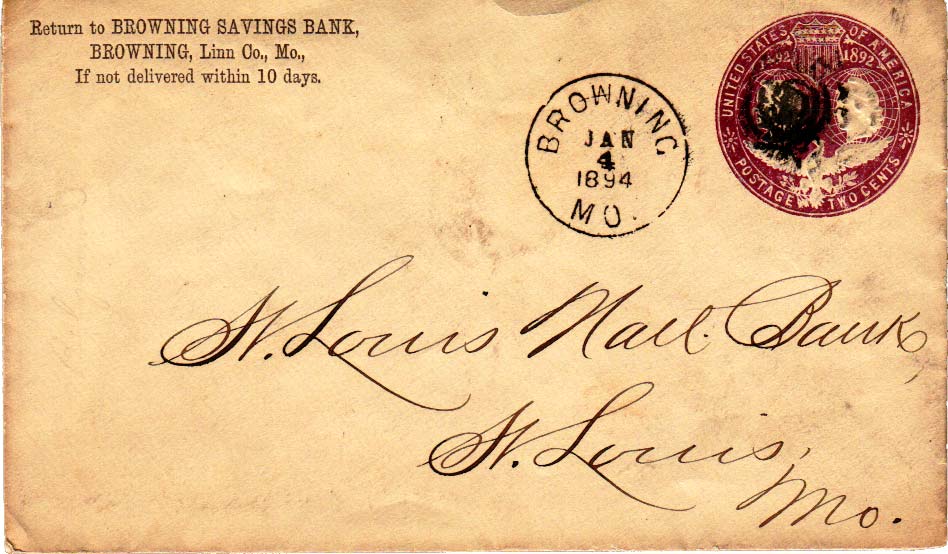 Return to BROWNING SAVINGS BANK,
BROWNING, Linn Co., Mo.,
If not delivered within 10 days.
BROWNING
JAN
4
1894
MO.
UNITED STATES OF AMERICA
1892
POSTAGE TWO CENTS
St. Louis Natl. Bank,
St. Louis,
Mo.